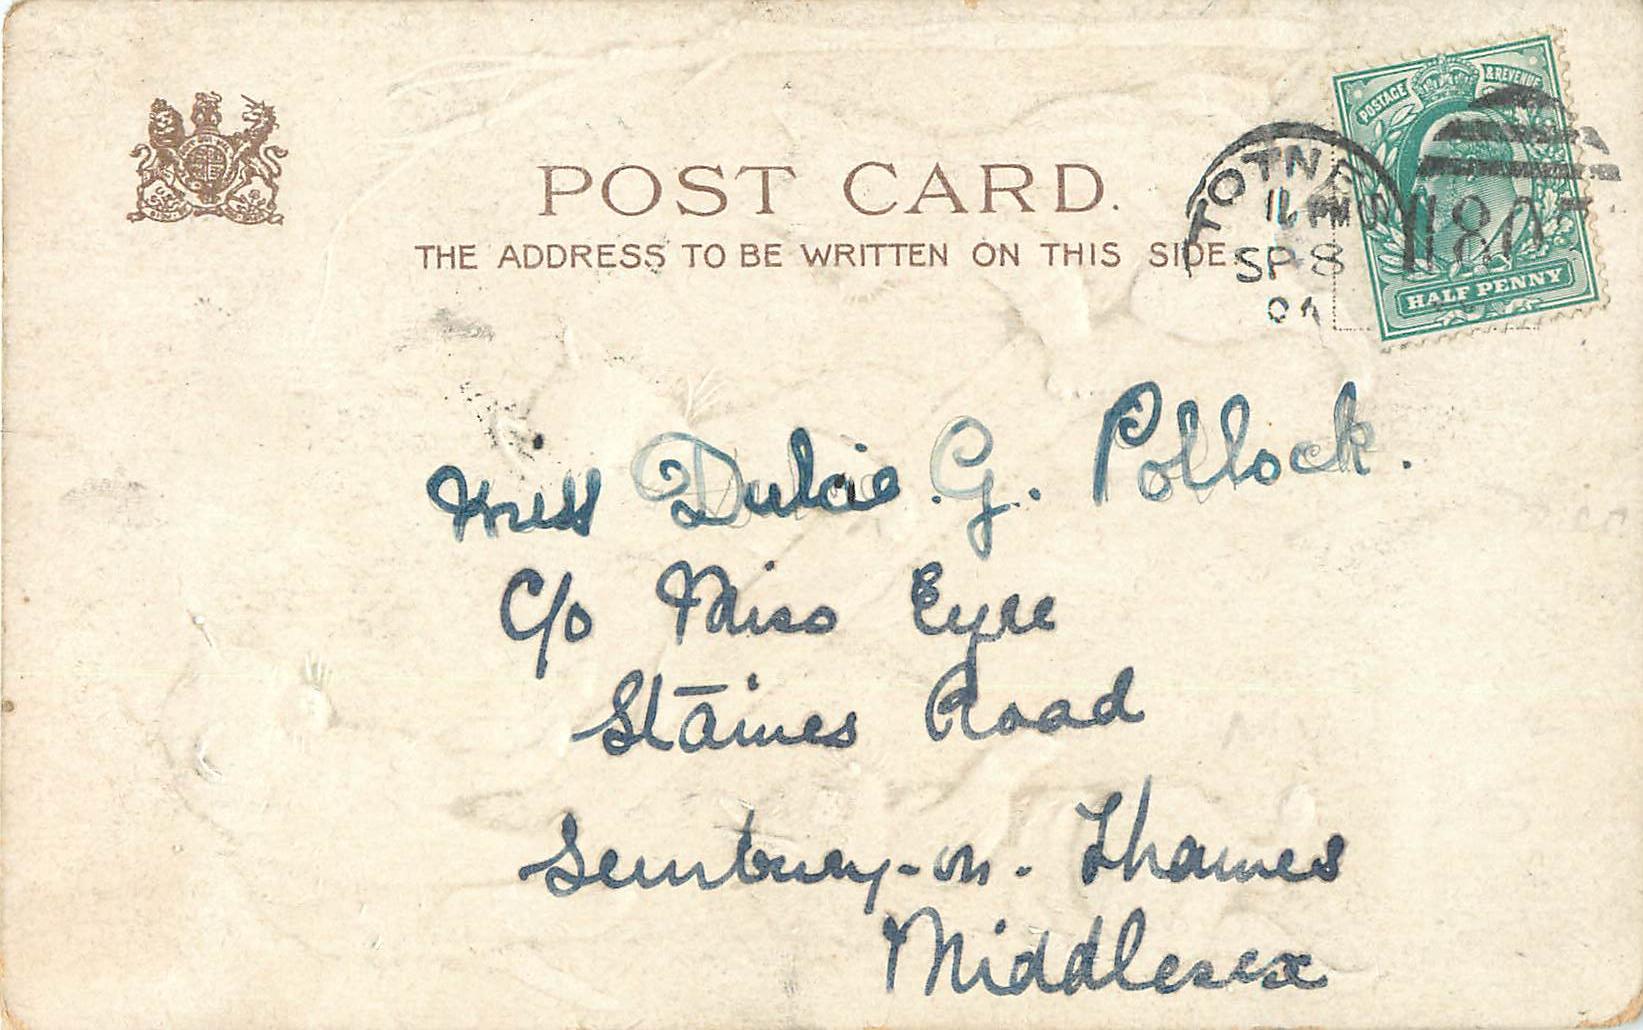 POST CARD.
THE ADDRESS TO BE WRITTEN ON THIS SIDE.
POSTAGE & REVENUE
HALF PENNY
TOTNES
PM
SP 8
Miss Dulcie. G. Pollock.
C/o Miss Eyre
Staines Road
Sunbury-on-Thames
Middlesex